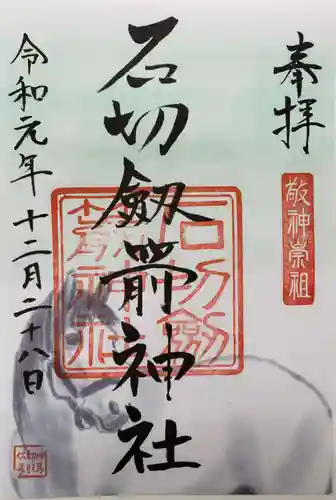 奉拝
敬神崇祖
石切劔箭神社
石切劔箭神社
令和元年十二月二十八日